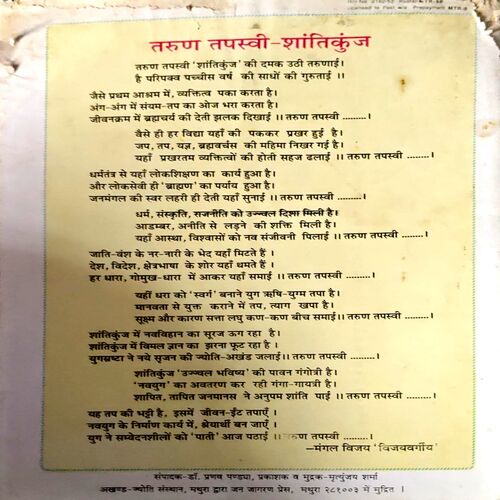 तरुण तपस्वी-शांतिकुंज
तरुण तपस्वी 'शांतिकुंज' की दमक उठी तरुणाई।
है परिपक्व पच्चीस वर्ष की साधों की गुरुताई ।।
जैसे प्रथम आश्रम में, व्यक्तित्व पका करता है।
अंग-अंग में संयम-तप का ओज भरा करता है।
जीवनक्रम में ब्रह्मचर्य की देती झलक दिखाई ।। तरुण तपस्वी .........।
वैसे ही हर विद्या यहाँ की पककर प्रखर हुई है।
जप, तप, यज्ञ, ब्रह्मवर्चस की महिमा निखर गई है।
यहाँ प्रखरतम व्यक्तित्वों की होती सहज ढलाई ।। तरुण तपस्वी .........।
धर्मतंत्र से यहाँ लोकशिक्षण का कार्य हुआ है।
और लोकसेवी ही 'ब्राह्मण' का पर्याय हुआ है।
जनमंगल की स्वर लहरी ही देती यहाँ सुनाई ।। तरुण तपस्वी .........।
धर्म, संस्कृति, राजनीति को उज्ज्वल दिशा मिली है।
आडम्बर, अनीति से लड़ने की शक्ति मिली है।
यहाँ आस्था, विश्वासों को नव संजीवनी पिलाई ।। तरुण तपस्वी .........।
जाति-वंश के नर-नारी के भेद यहाँ मिटते हैं ।
देश, विदेश, क्षेत्रभाषा के शोर यहाँ थमते हैं ।
हर धारा, गोमुख-धारा में आकर यहाँ समाई ।। तरुण तपस्वी .........।
यहीं धरा को 'स्वर्ग' बनाने युग ऋषि-युग्म तपा है।
मानवता से युक्त कराने में तप, त्याग खपा है।
सूक्ष्म और कारण सत्ता लघु कण-कण बीच समाई।। तरुण तपस्वी .........।
शांतिकुंज में नवविहान का सूरज ऊग रहा है।
शांतिकुंज में विमल ज्ञान का झरना फूट रहा है ।
युगस्रष्टा ने नये सृजन की ज्योति-अखंड जलाई।। तरुण तपस्वी .........।
शांतिकुंज 'उज्ज्वल भविष्य' की पावन गंगोत्री है।
'नवयुग' का अवतरण कर रही गंगा-गायत्री है।
शापित, तापित जनमानस ने अनुपम शांति पाई ।। तरुण तपस्वी .........।
यह तप की भट्टी है, इसमें जीवन-ईंट तपाएँ ।
नवयुग के निर्माण कार्य में, श्रेयार्थी बन जाएँ ।
युग ने सम्वेदनशीलों को 'पाती' आज पठाई ।। तरुण तपस्वी .........।
—मंगल विजय 'विजयवर्गीय'
संपादक-डॉ. प्रणव पण्ड्या, प्रकाशक व मुद्रक-मृत्युंजय शर्मा
अखण्ड-ज्योति संस्थान, मथुरा द्वारा जन जागरण प्रेस, मथुरा २८१००३ में मुद्रित ।